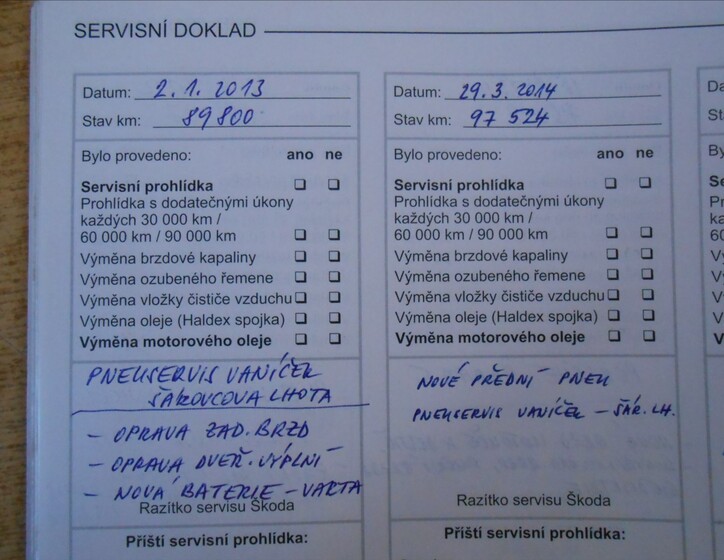 SERVISNÍ DOKLAD
Datum: 2.1.2013
Stav km: 89800
Bylo provedeno: ano ne
Servisní prohlídka
Prohlídka s dodatečnými úkony
každých 30 000 km /
60 000 km / 90 000 km
Výměna brzdové kapaliny
Výměna ozubeného řemene
Výměna vložky čističe vzduchu
Výměna oleje (Haldex spojka)
Výměna motorového oleje
PNEUSERVIS VANÍČEK
ŠÁROVCOVA LHOTA
- OPRAVA ZAD. BRZD
- OPRAVA DVEŘ. VÝPLNÍ
- NOVÁ BATERIE - VARTA
Razítko servisu Škoda
Příští servisní prohlídka:
Datum: 29.3.2014
Stav km: 97 524
Bylo provedeno: ano ne
Servisní prohlídka
Prohlídka s dodatečnými úkony
každých 30 000 km /
60 000 km / 90 000 km
Výměna brzdové kapaliny
Výměna ozubeného řemene
Výměna vložky čističe vzduchu
Výměna oleje (Haldex spojka)
Výměna motorového oleje
NOVÉ PŘEDNÍ PNEU
PNEUSERVIS VANÍČEK - ŠÁR. LH.
Razítko servisu Škoda
Příští servisní prohlídka: